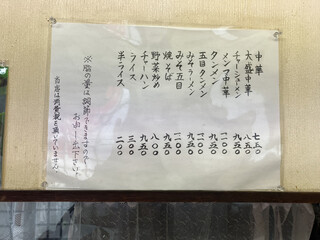 中華 七五〇
大盛中華 八五〇
チャーシューメン 九五〇
メンマ中華 九五〇
タンメン 九五〇
五目タンメン 一一〇〇
みそラーメン 九五〇
みそ五目 一一〇〇
焼そば 九五〇
野菜炒め 八〇〇
チャーハン 九五〇
ライス 三〇〇
半ライス 二〇〇
※脂の量は調節できますので
お申し出下さい
当店は消費税を頂いていません